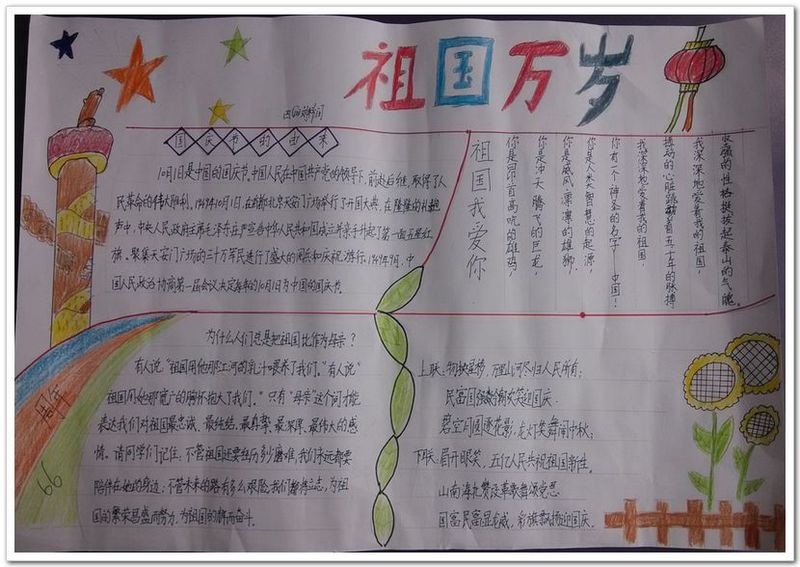 祖国万岁
国庆节的由来
10月1日是中国的国庆节。中国人民在中国共产党的领导下,前赴后继,取得了人
民革命的伟大胜利。1949年10月1日,在首都北京天安门广场举行了开国大典,在隆隆的礼炮
声中,中央人民政府主席毛泽东庄严宣告中华人民共和国成立并亲手升起了第一面五星红
旗。聚集天安门广场的三十万军民进行了盛大的阅兵和庆祝游行。1949年9月,中
国人民政治协商第一届会议决定每年的10月1日为中国的国庆节。
祖国我爱你
你是昂首高吭的雄鸡,
你是冲天腾飞的巨龙,
你是威风凛凛的雄狮,
你是人类智慧的起源,
你有一个神圣的名字——中国!
我深深地爱着我的祖国,
搏动的心脏跳动着五千年的脉搏
我深深地爱着我的祖国
收藏的性格挺拔起泰山的气魄。
为什么人们总是把祖国比作为母亲?
有人说"祖国用他那江河的乳汁喂养了我们。"有人说"
祖国用她那宽广的胸怀抱大了我们。"只有"母亲"这个词才能
表达我们对祖国最忠诚、最纯洁、最真挚、最深厚、最伟大的感
情。请同学们记住,不管祖国还要经历多少磨难,我们永远都要
陪伴在她的身边;不管未来的路有多么艰险,我们都得立志,为祖
国的繁荣昌盛而努力,为祖国的解而奋斗。
周年
66
上联:物换星移,万里山河尽归人民所有;
民富国强 潮欢笑迎国庆。
碧空月圆逐花影,龙灯笑舞闹中秋;
下联:眉开眼笑,五亿人民共祝祖国新生。
山南海北赞改革歌舞颂党恩
国富民富显龙威,彩旗飘扬迎国庆。